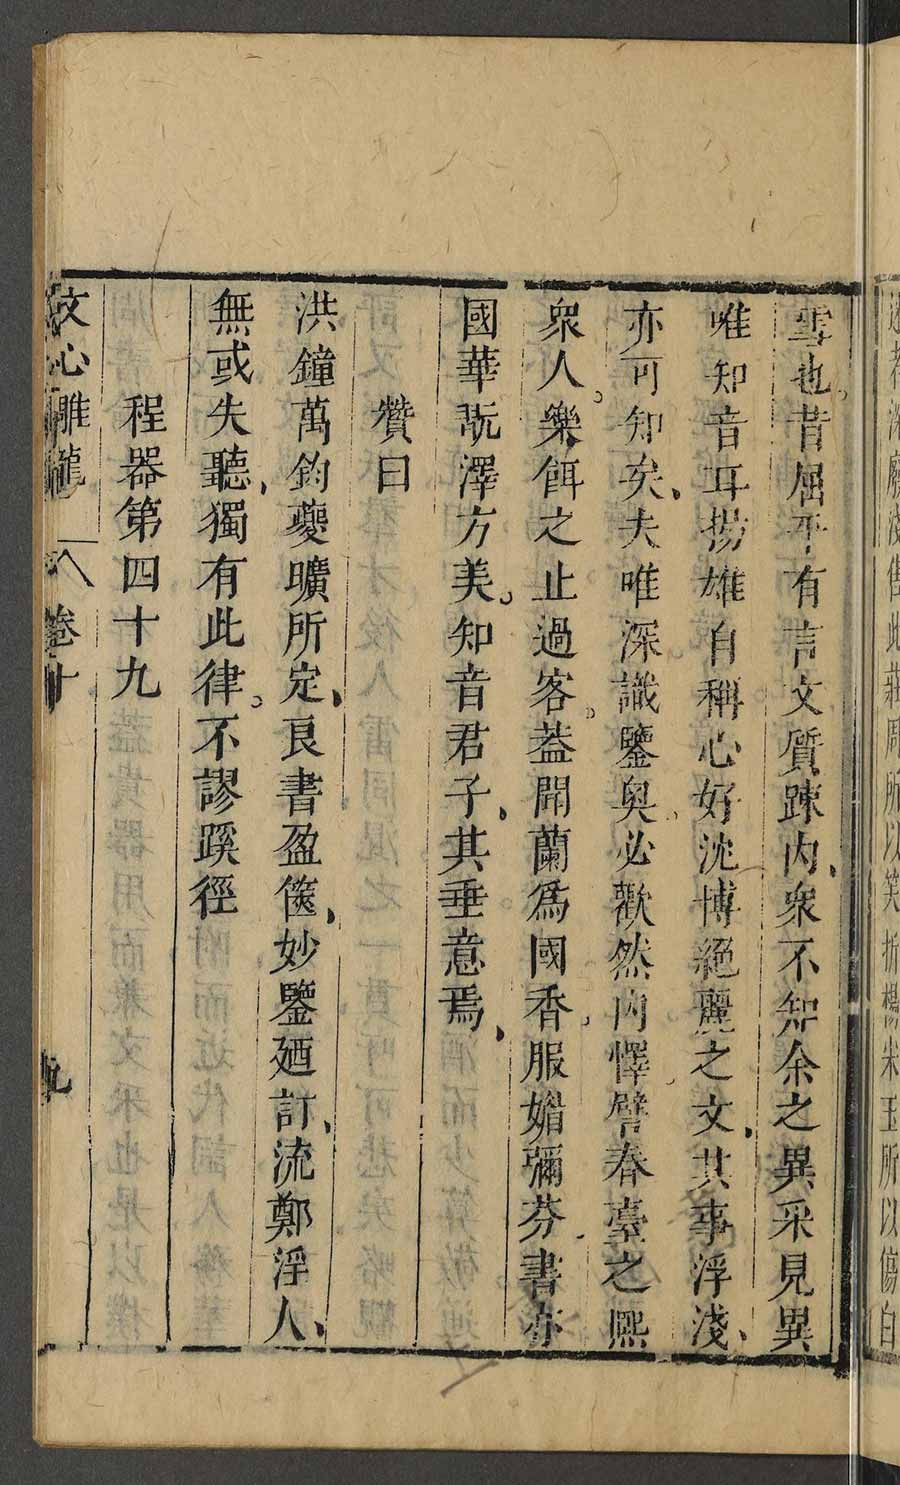 迷者深廢淺售此莊周所以笑折楊宋玉所以傷白
雪也昔屈平有言文質踈内衆不知余之異采見異
唯知音耳揚雄自稱心好沈博絕麗之文其事浮淺
亦可知矣夫唯深識鑒奧必歡然内懌譬春臺之熈
衆人樂餌之止過客葢聞蘭爲國香服媚彌芬書亦
國華翫澤方美知音君子其垂意焉
贊曰
洪鐘萬鈞夔曠所定良書盈篋妙鑒廼訂流鄭浮人
無或失聽獨有此律不謬蹊徑
程器第四十九
文心雕龍 卷十 九